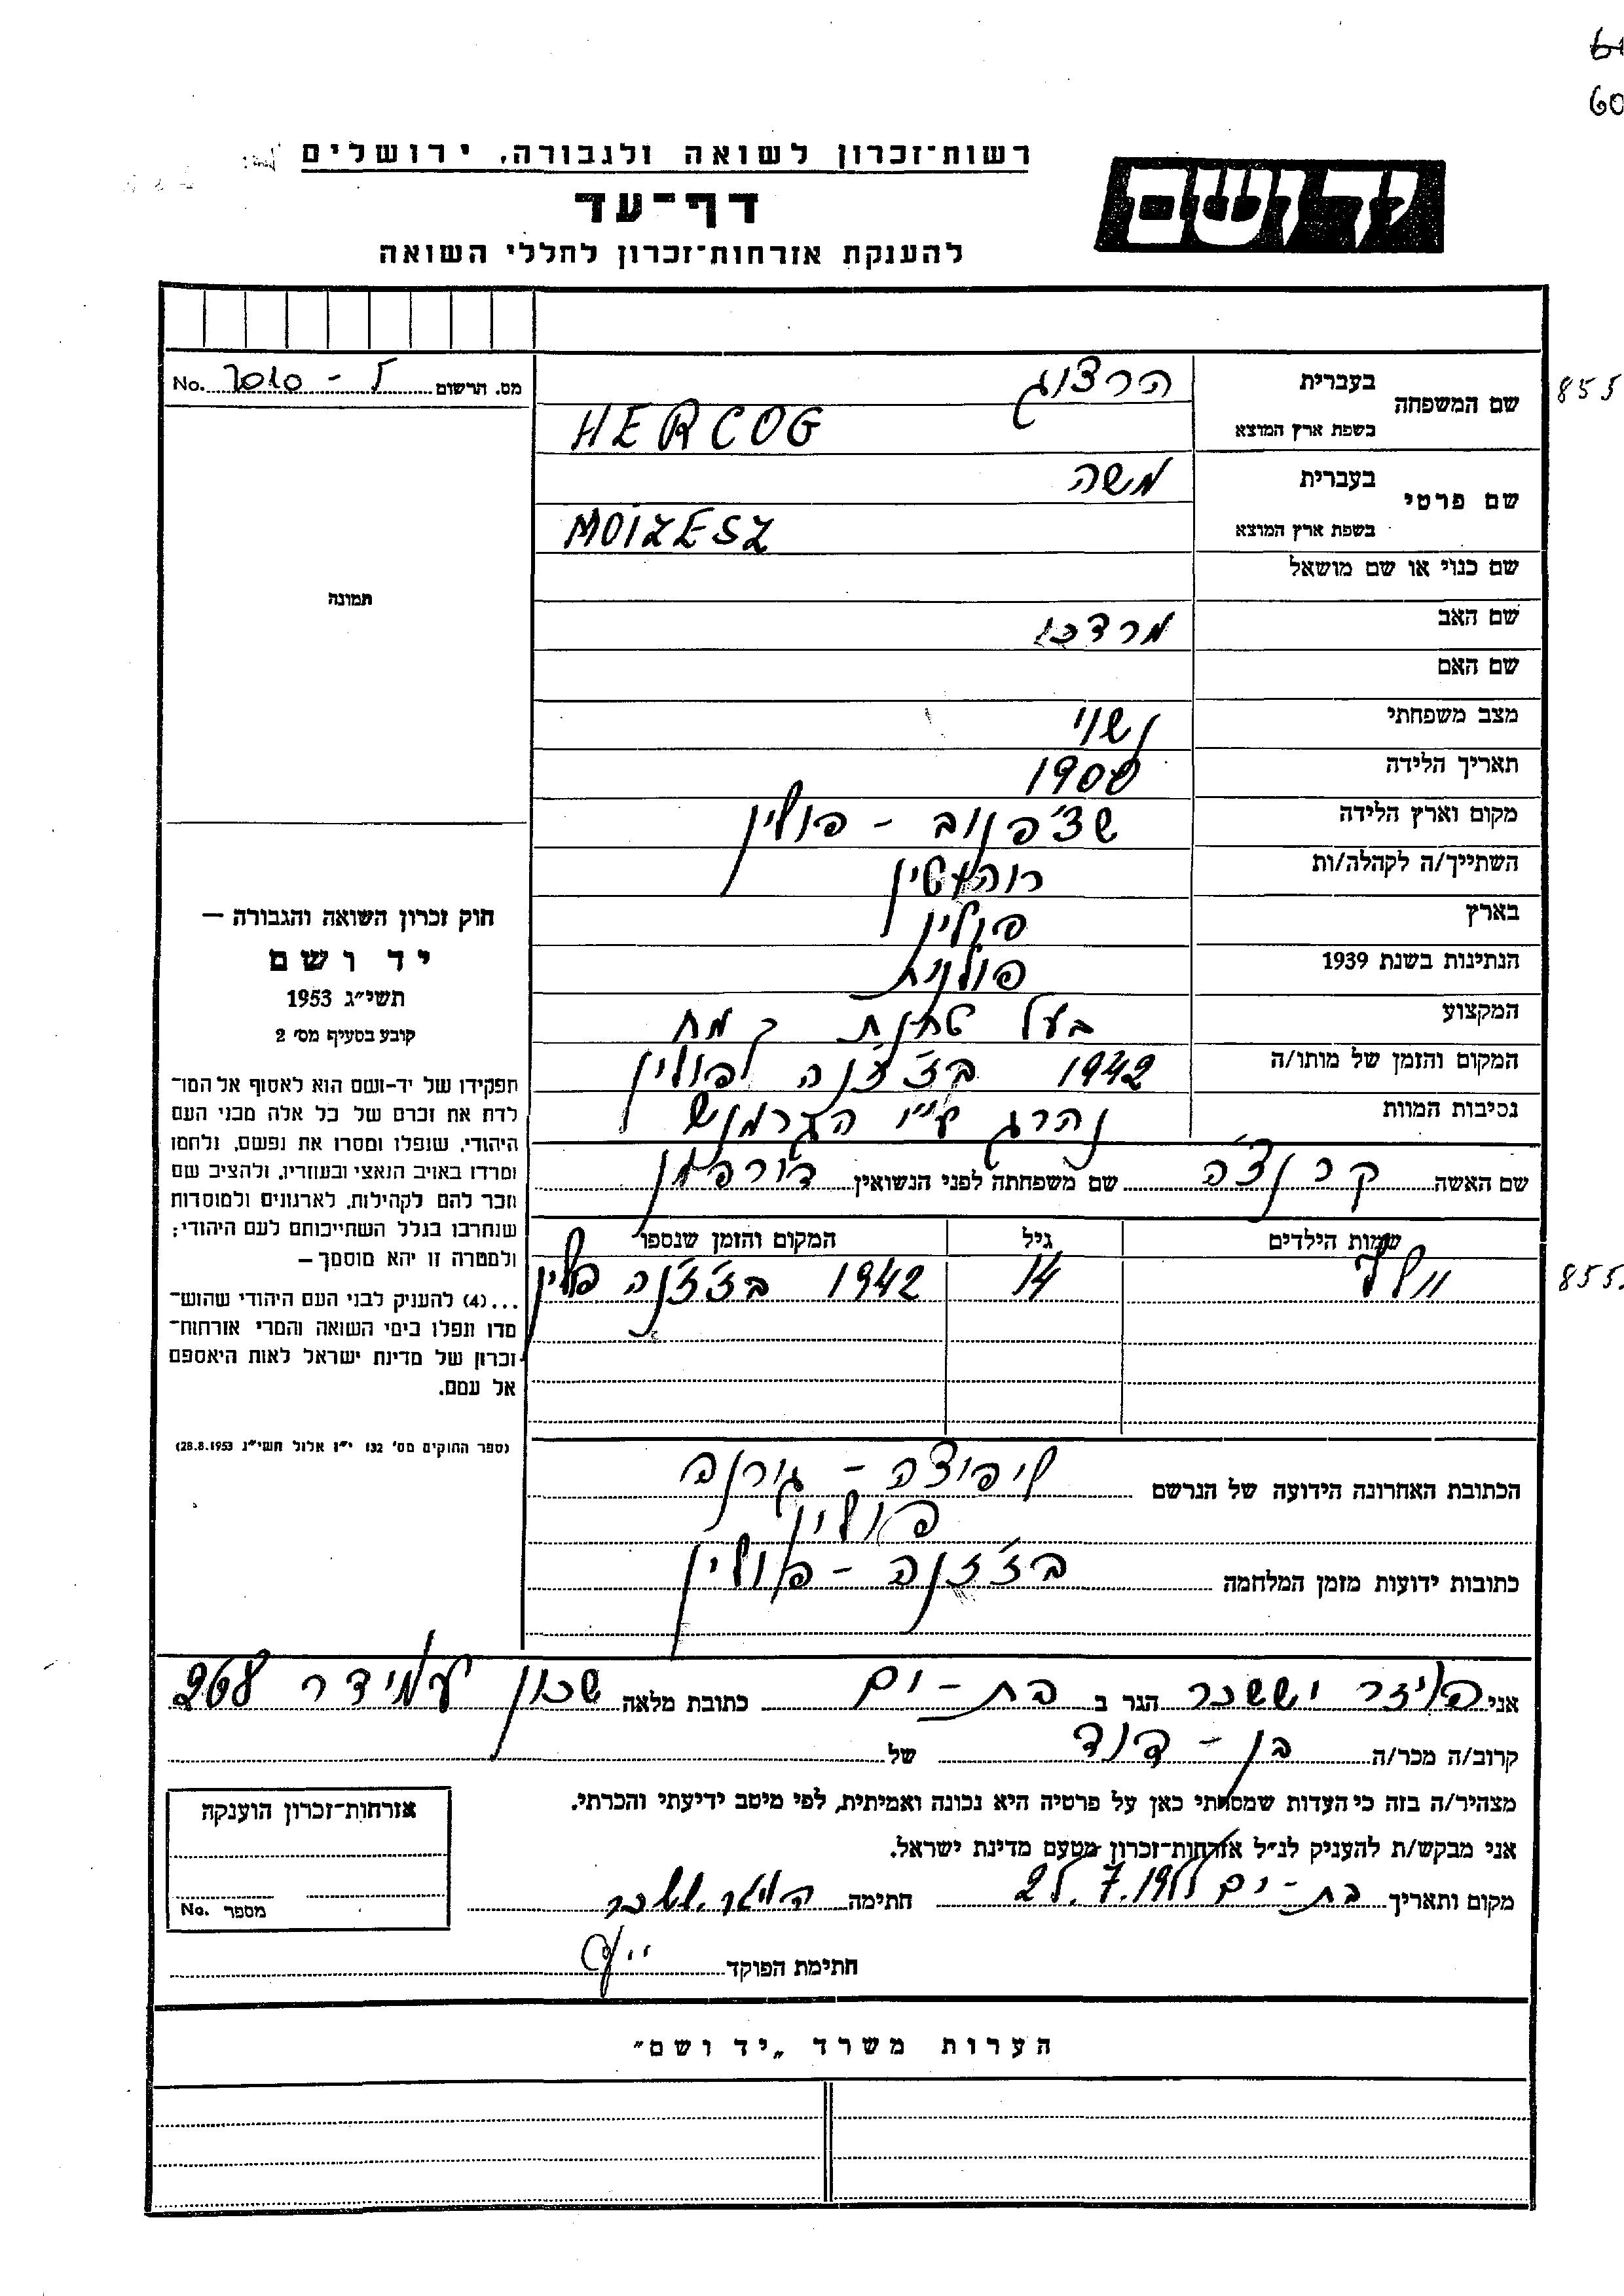 60
רשות־זכרון לשואה ולגבורה, ירושלים
יד ושם
דף־עד
להענקת אזרחות־זכרון לחללי השואה
שם המשפחה
בעברית
הרצוג
855
בשפת ארץ המוצא
HERCOG
שם פרטי
בעברית
משה
בשפת ארץ המוצא
MOIZESZ
שם כנוי או שם מושאל
שם האב מרדכי
שם האם
מצב משפחתי נשוי
תאריך הלידה 1900
מקום וארץ הלידה שצ'פנוב - פולין
השתייך/ה לקהלה/ות רוהטין
בארץ פולין
הנתינות בשנת 1939 פולנית
המקצוע בעל טחנת קמח
המקום והזמן של מותו/ה 1942
נסיבות המוות נהרג ע"י הגרמנים
שם האשה שם משפחתה לפני הנשואין
שמות הילדים גיל המקום והזמן שנספו
14 1942 בז'ז'נה פולין
855
הכתובת האחרונה הידועה של הנרשם ליפיצה - גורנה
פולין
כתובות ידועות מזמן המלחמה בז'ז'נה - פולין
מס. תרשום No. 2010 - 5
תמונה
חוק זכרון השואה והגבורה —
יד ושם
תשי״ג 1953
קובע בסעיף מס׳ 2
תפקידו של יד-ושם הוא לאסוף אל המו־
לדת את זכרם של כל אלה מבני העם
היהודי, שנפלו ומסרו את נפשם, נלחמו
ומרדו באויב הנאצי ובעוזריו, ולהציב שם
וזכר להם לקהילות, לארגונים ולמוסדות
שנחרבו בגלל השתייכותם לעם היהודי;
ולמטרה זו יהא מוסמך —
...(4) להעניק לבני העם היהודי שהוש־
מדו ונפלו בימי השואה והמרי אזרחות־
זכרון של מדינת ישראל לאות היאספם
אל עמם.
(ספר החוקים מס׳ 132 י״ז אלול תשי״ג 28.8.1953)
אני יששכר הגר ב בת-ים כתובת מלאה שכון עמידר 268
קרוב/ה מכר/ה בן - דוד של
מצהיר/ה בזה כי העדות שמסרתי כאן על פרטיה היא נכונה ואמיתית, לפי מיטב ידיעתי והכרתי.
אני מבקש/ת להעניק לנ״ל אזרחות־זכרון מטעם מדינת ישראל.
מקום ותאריך בת-ים חתימה
חתימת הפוקד
אזרחות־זכרון הוענקה
מספר No.
הערות משרד „יד ושם״